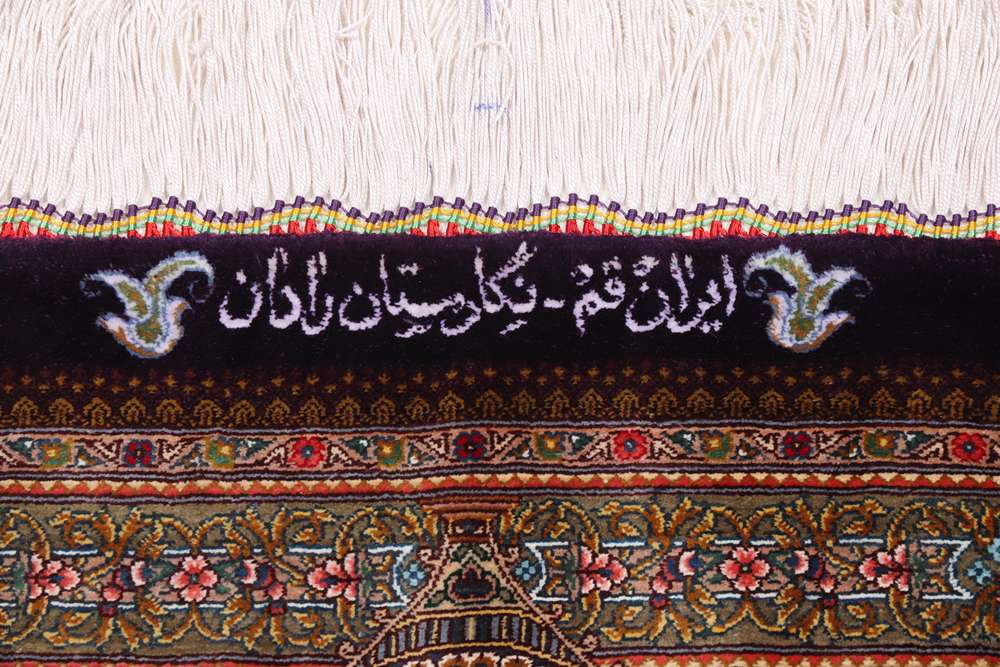 ایران قم - نگارستان رادان